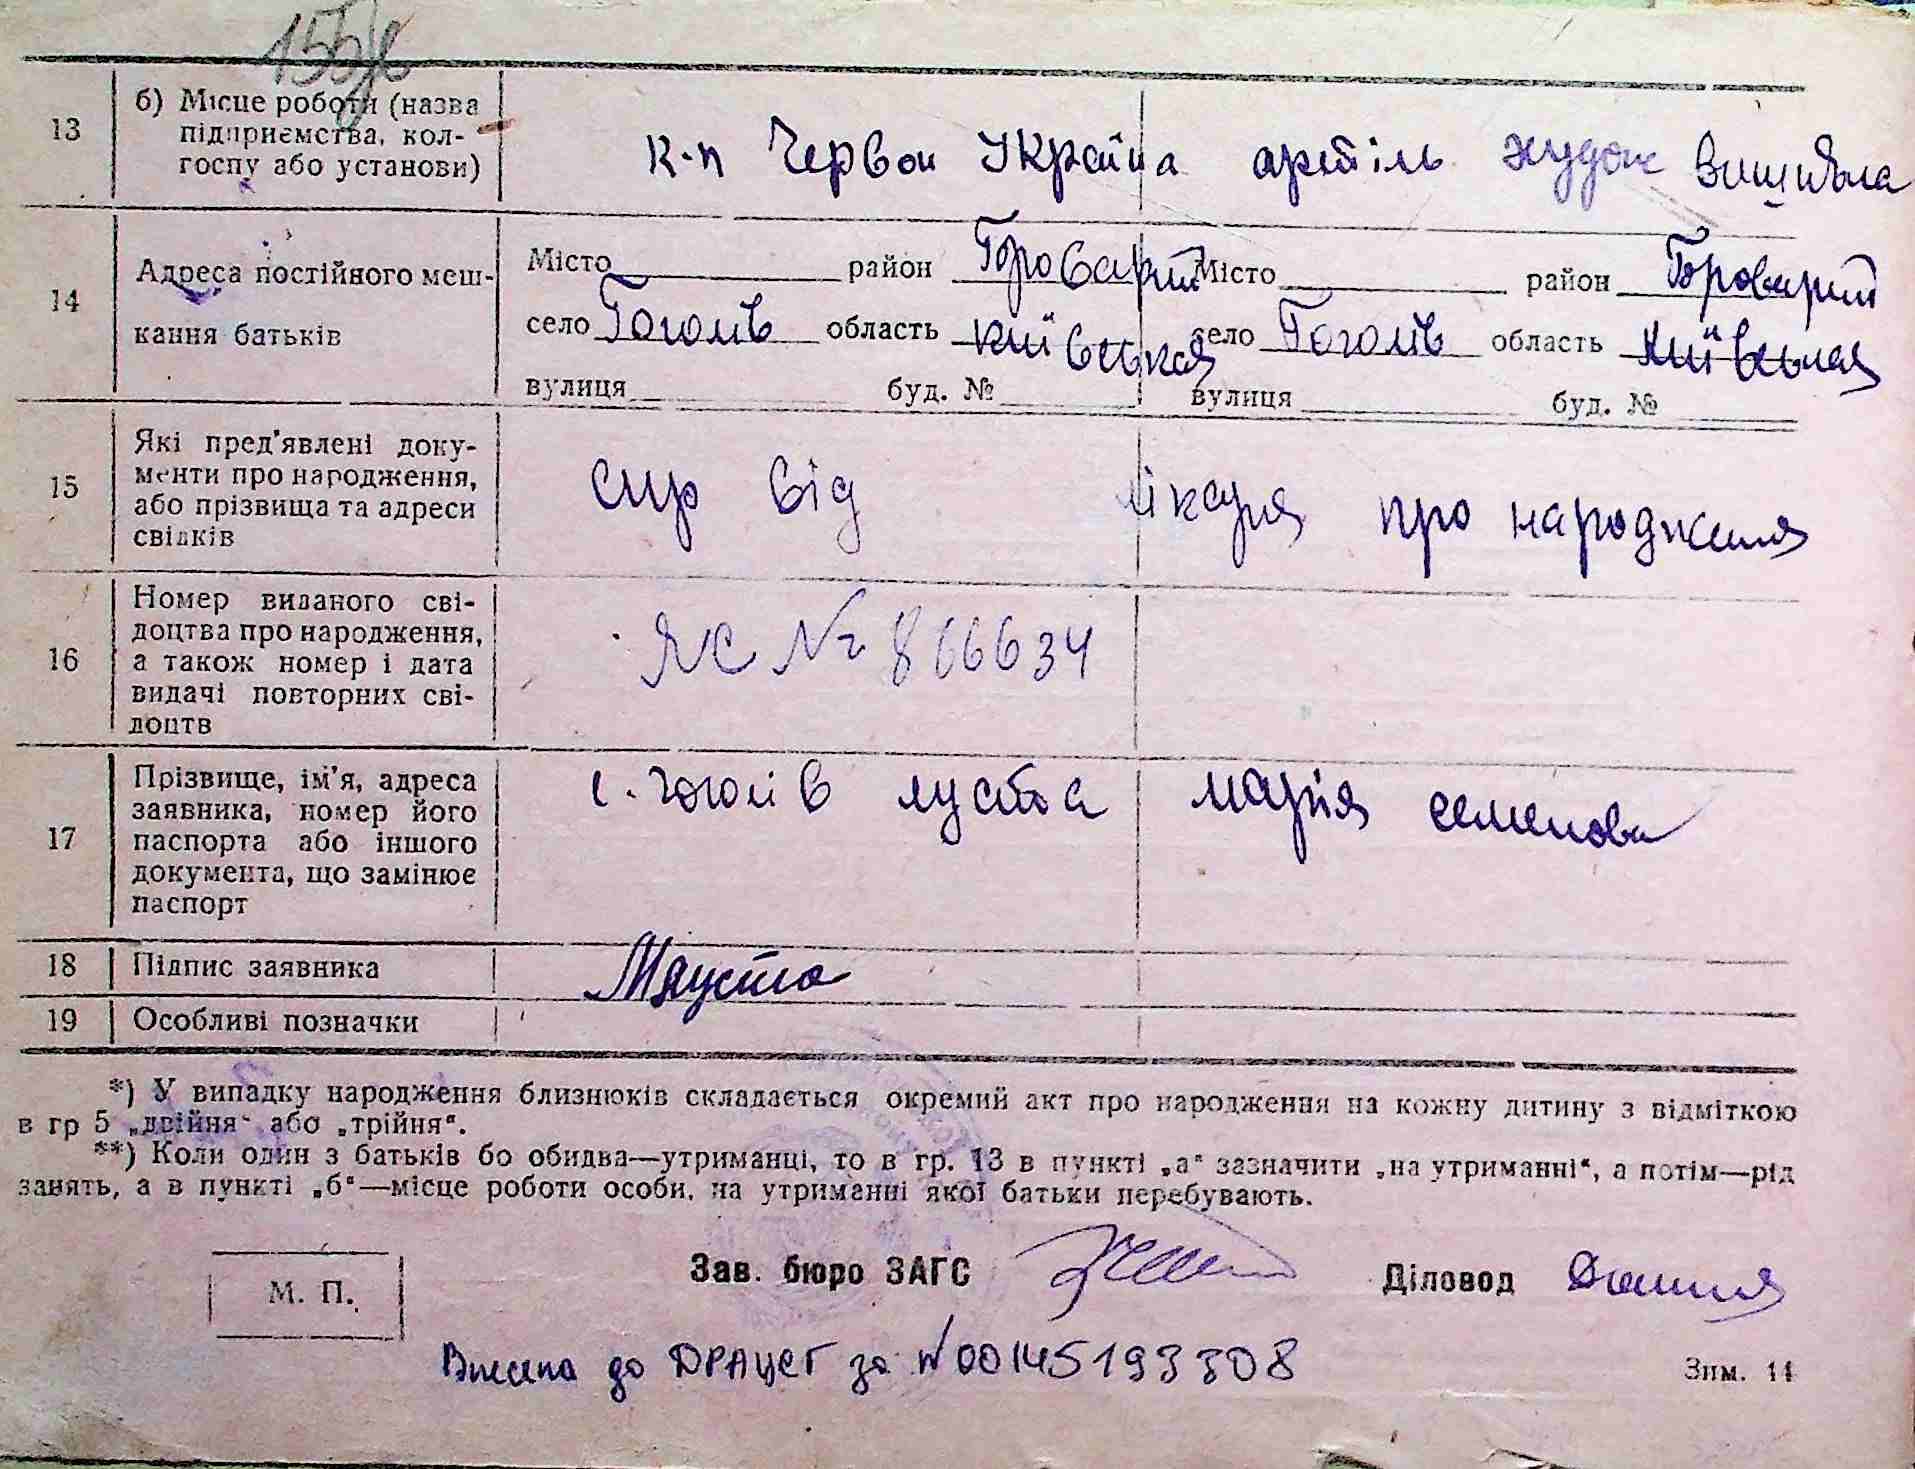 155
13 б) Місце роботи (назва
підприємства, кол-
госпу або установи)
к-п Червон Україна артіль худож вишивла
14 Адреса постійного меш-
кання батьків
Місто район Броварий Місто район Броварий
село Гоголів область Київська село Гоголів область Київская
вулиця буд. № вулиця буд. №
15 Які пред'явлені доку-
менти про народження,
або прізвища та адреси
свідків
спр від лікаря про народження
16 Номер виданого сві-
доцтва про народження,
а також номер і дата
видачі повторних сві-
доцтв
ЯС № 866634
17 Прізвище, ім'я, адреса
заявника, номер його
паспорта або іншого
документа, що замінює
паспорт
с. гоголів луста марія семенова
18 Підпис заявника
19 Особливі позначки
*) У випадку народження близнюків складається окремий акт про народження на кожну дитину з відміткою
в гр 5 „двійня" або „трійня".
**) Коли один з батьків бо обидва—утриманці, то в гр. 13 в пункті „а" зазначити „на утриманні", а потім—рід
занять, а в пункті „б"—місце роботи особи, на утриманні якої батьки перебувають.
М. П. Зав. бюро ЗАГС Діловод
Внесена до ДРАЦСГ за №00145193308
Зим. 14